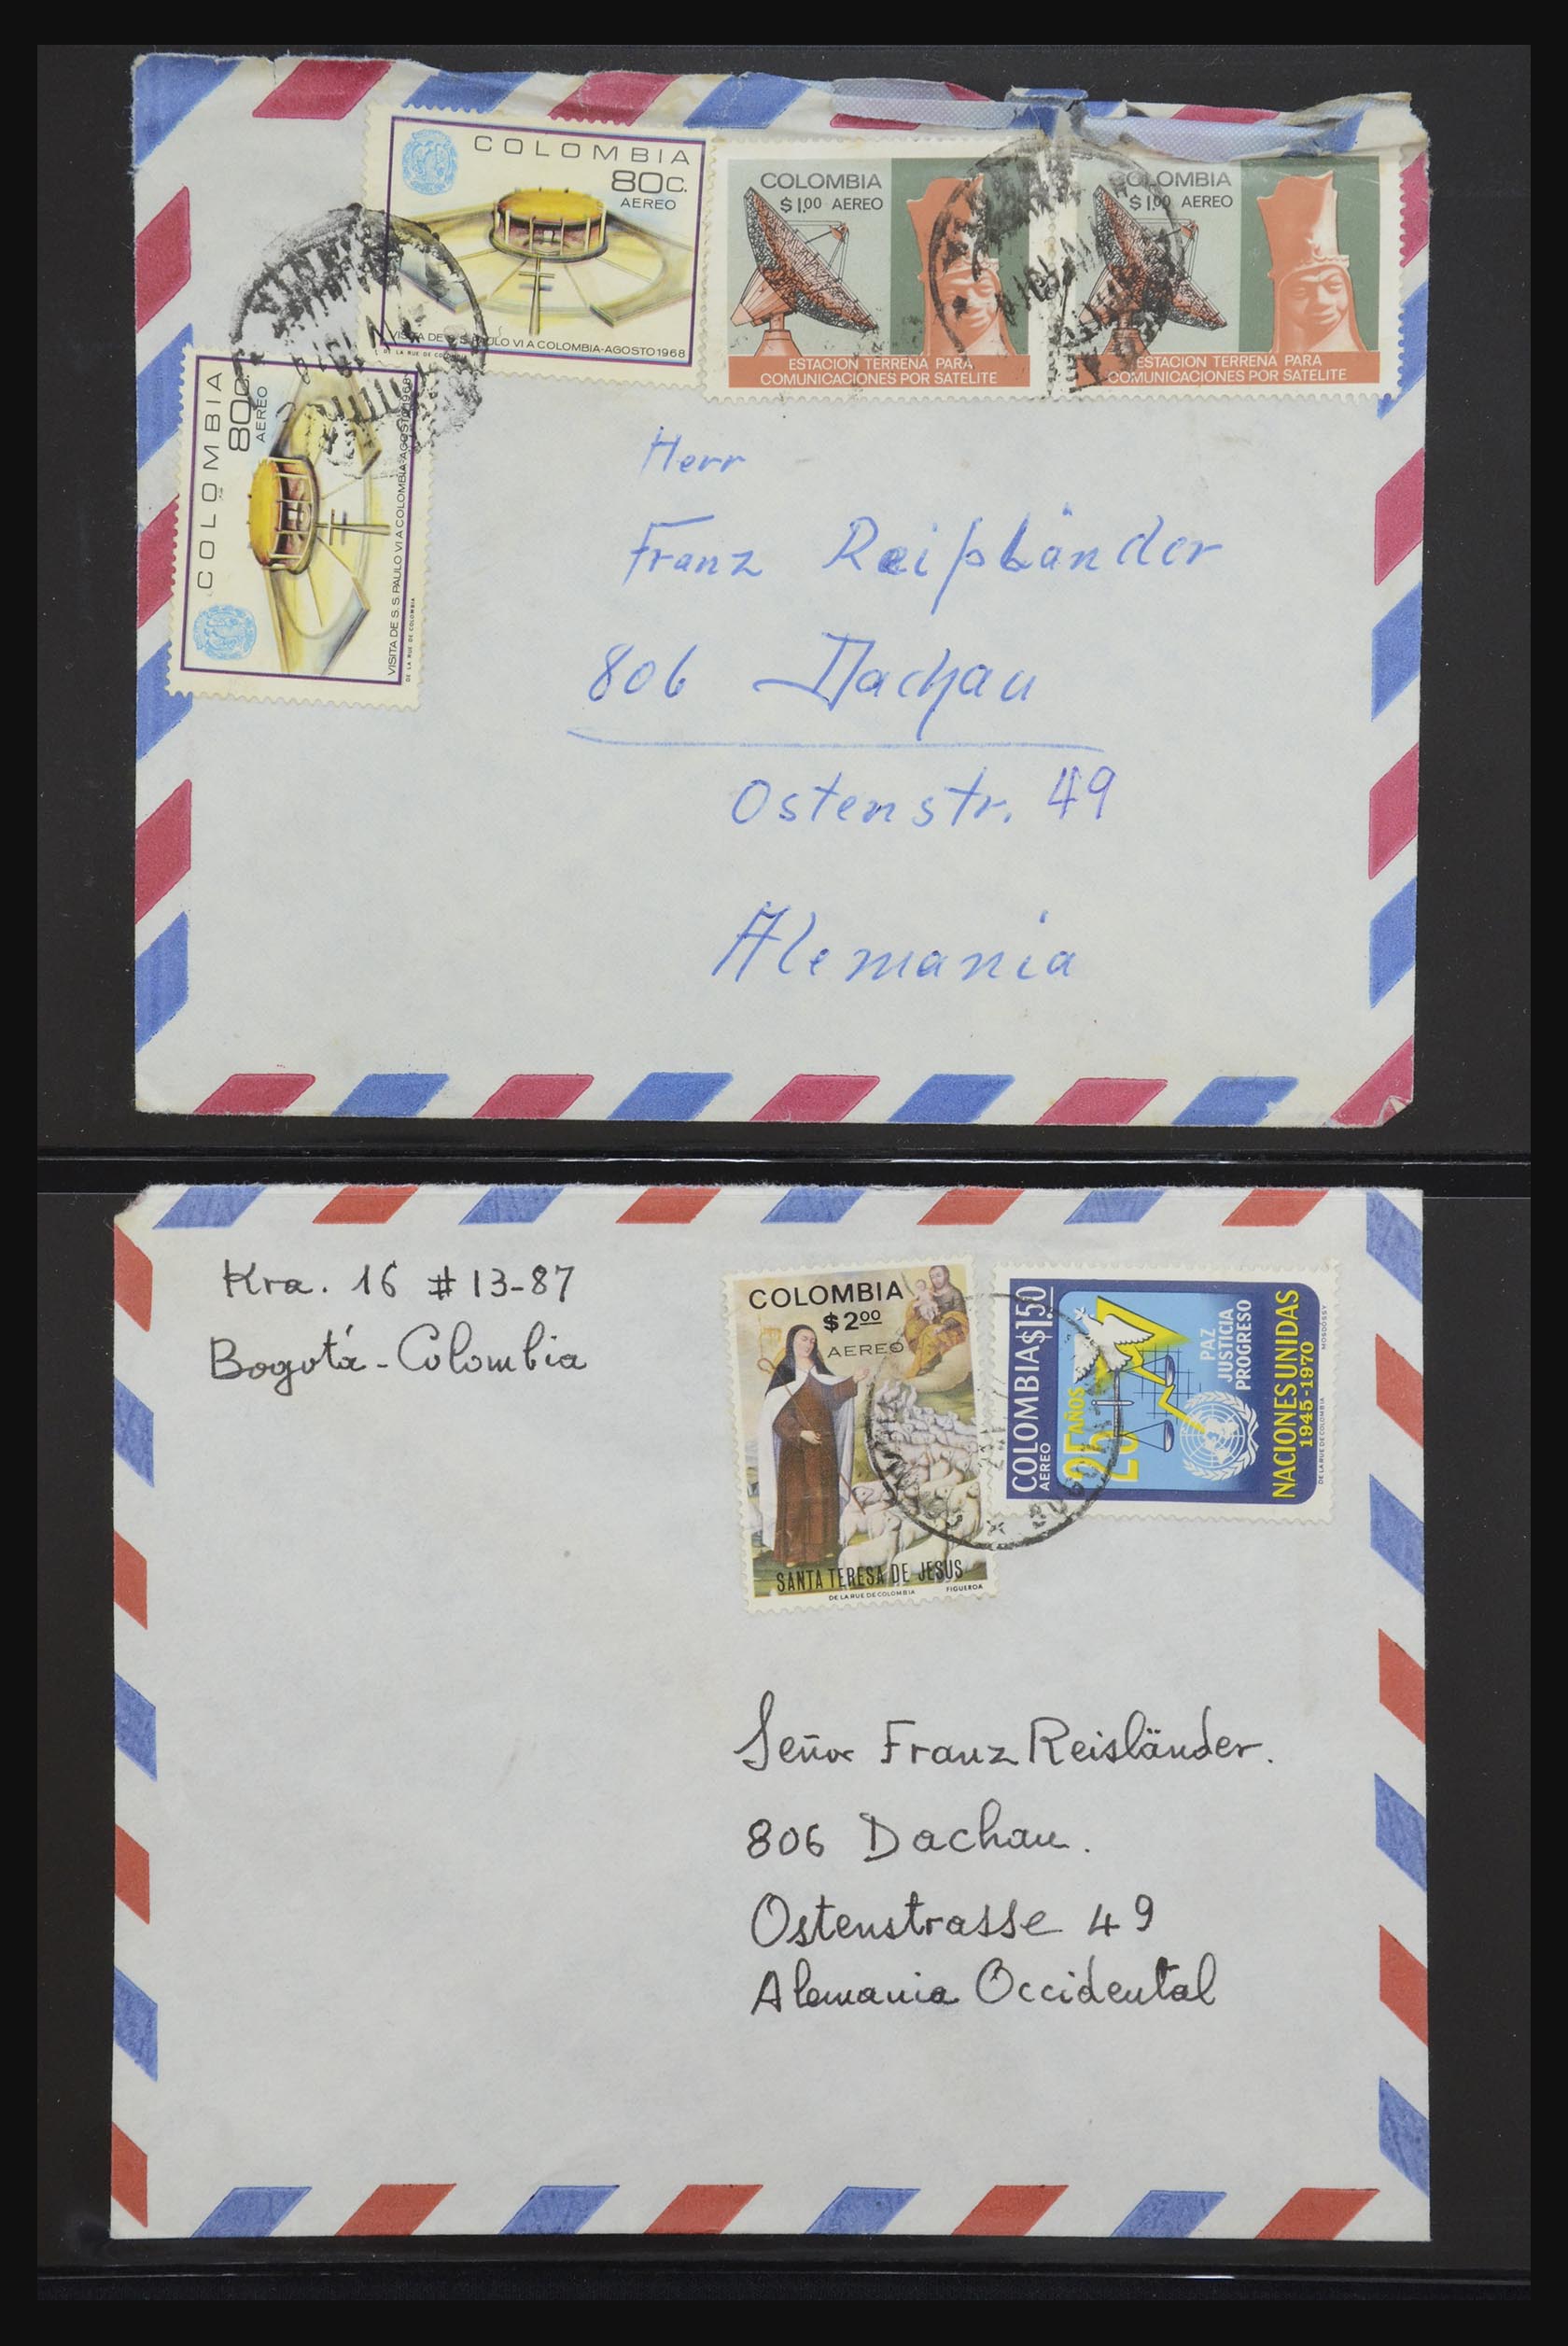 COLOMBIA
80C.
AEREO
VISITA DE S.S. PAULO VI A COLOMBIA-AGOSTO 1968
DE LA RUE DE COLOMBIA
COLOMBIA
$1.00 AEREO
ESTACION TERRENA PARA
COMUNICACIONES POR SATELITE
COLOMBIA
$1.00 AEREO
ESTACION TERRENA PARA
COMUNICACIONES POR SATELITE
COLOMBIA
80C.
AEREO
VISITA DE S.S. PAULO VI A COLOMBIA-AGOSTO 1968
DE LA RUE DE COLOMBIA
Herr
Franz Reißländer
806 Dachau
Ostenstr. 49
Alemania
Kra. 16 # 13-87
Bogotá - Colombia
COLOMBIA
$2.00
AEREO
SANTA TERESA DE JESUS
DE LA RUE DE COLOMBIA FIGUEROA
COLOMBIA $1.50
AEREO
25 AÑOS
PAZ
JUSTICIA
PROGRESO
NACIONES UNIDAS
1945-1970
DE LA RUE DE COLOMBIA
Señor Franz Reisländer.
806 Dachau.
Ostenstrasse 49
Alemania Occidental